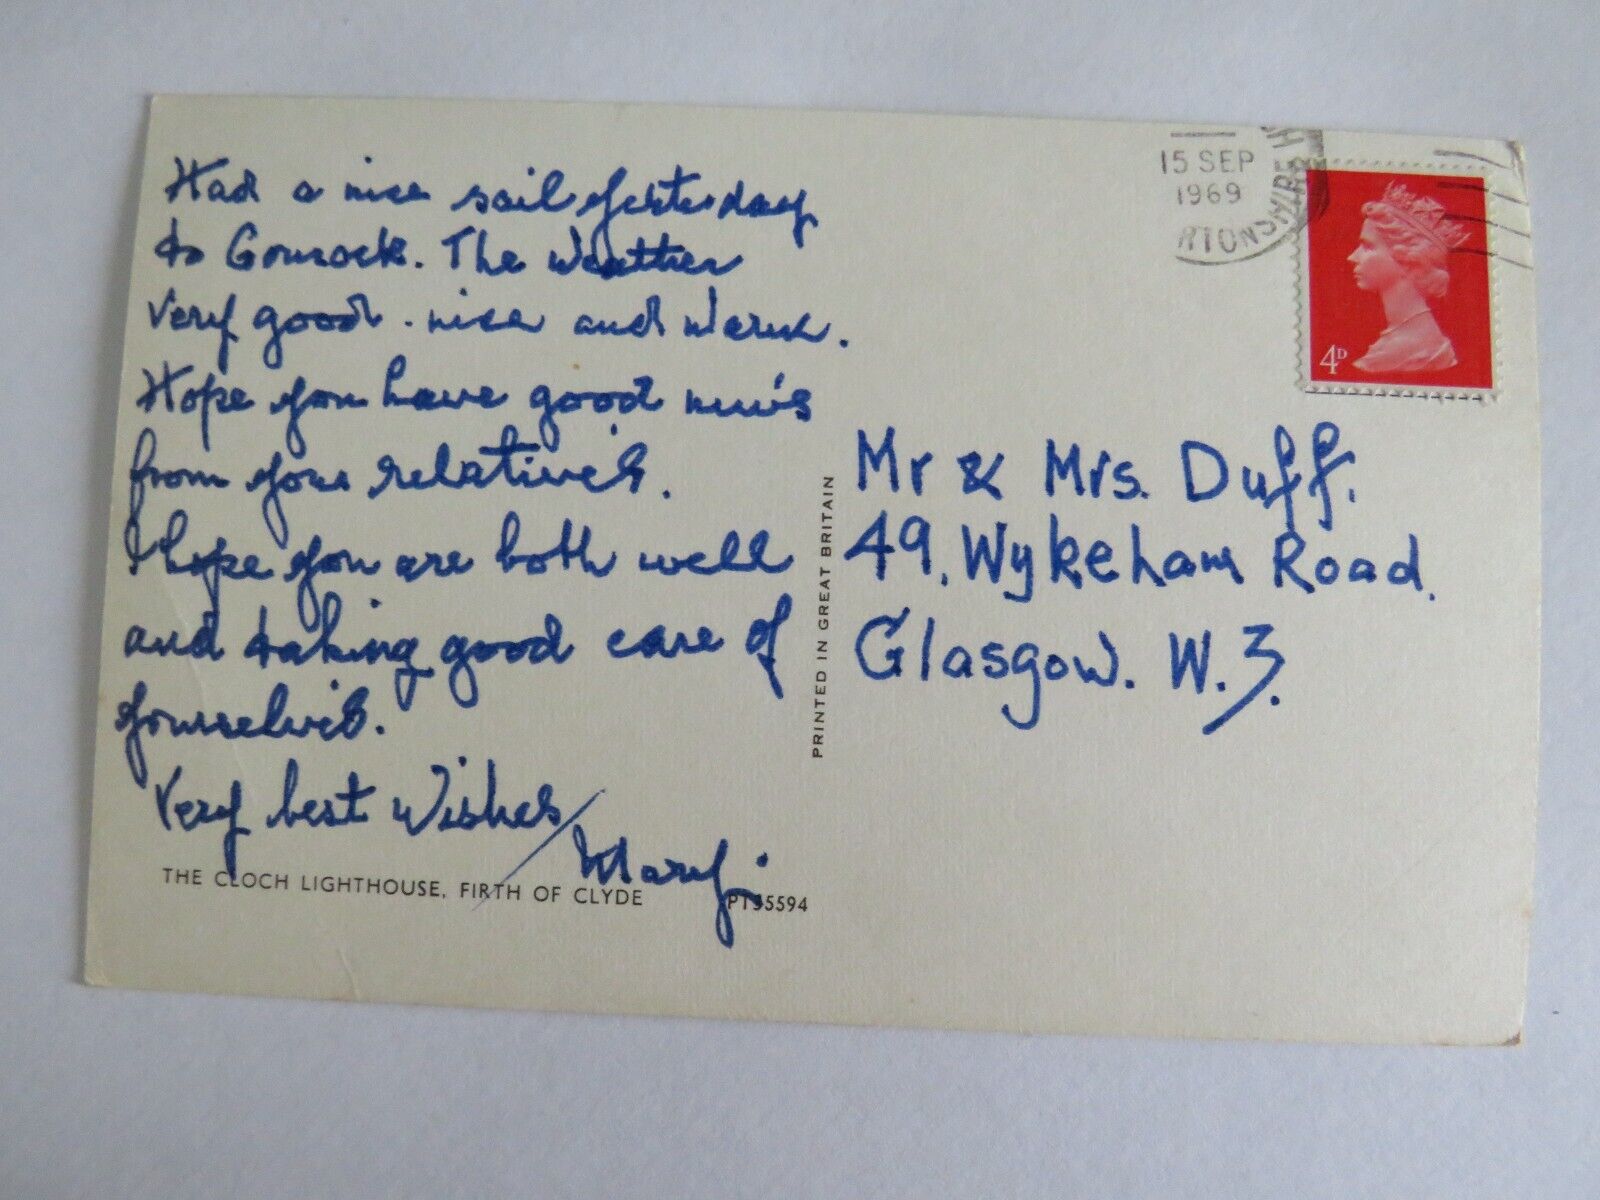 Had a nice sail yesterday
to Gourock. The Weather
Very good. nice and warm.
Hope you have good news
from your relatives.
I hope you are both well
and taking good care of
yourselves.
Very best Wishes
Mary.
THE CLOCH LIGHTHOUSE, FIRTH OF CLYDE
PT35594
PRINTED IN GREAT BRITAIN
15 SEP
1969
4D
Mr & Mrs. Duff.
49, Wykeham Road.
Glasgow. W.3.